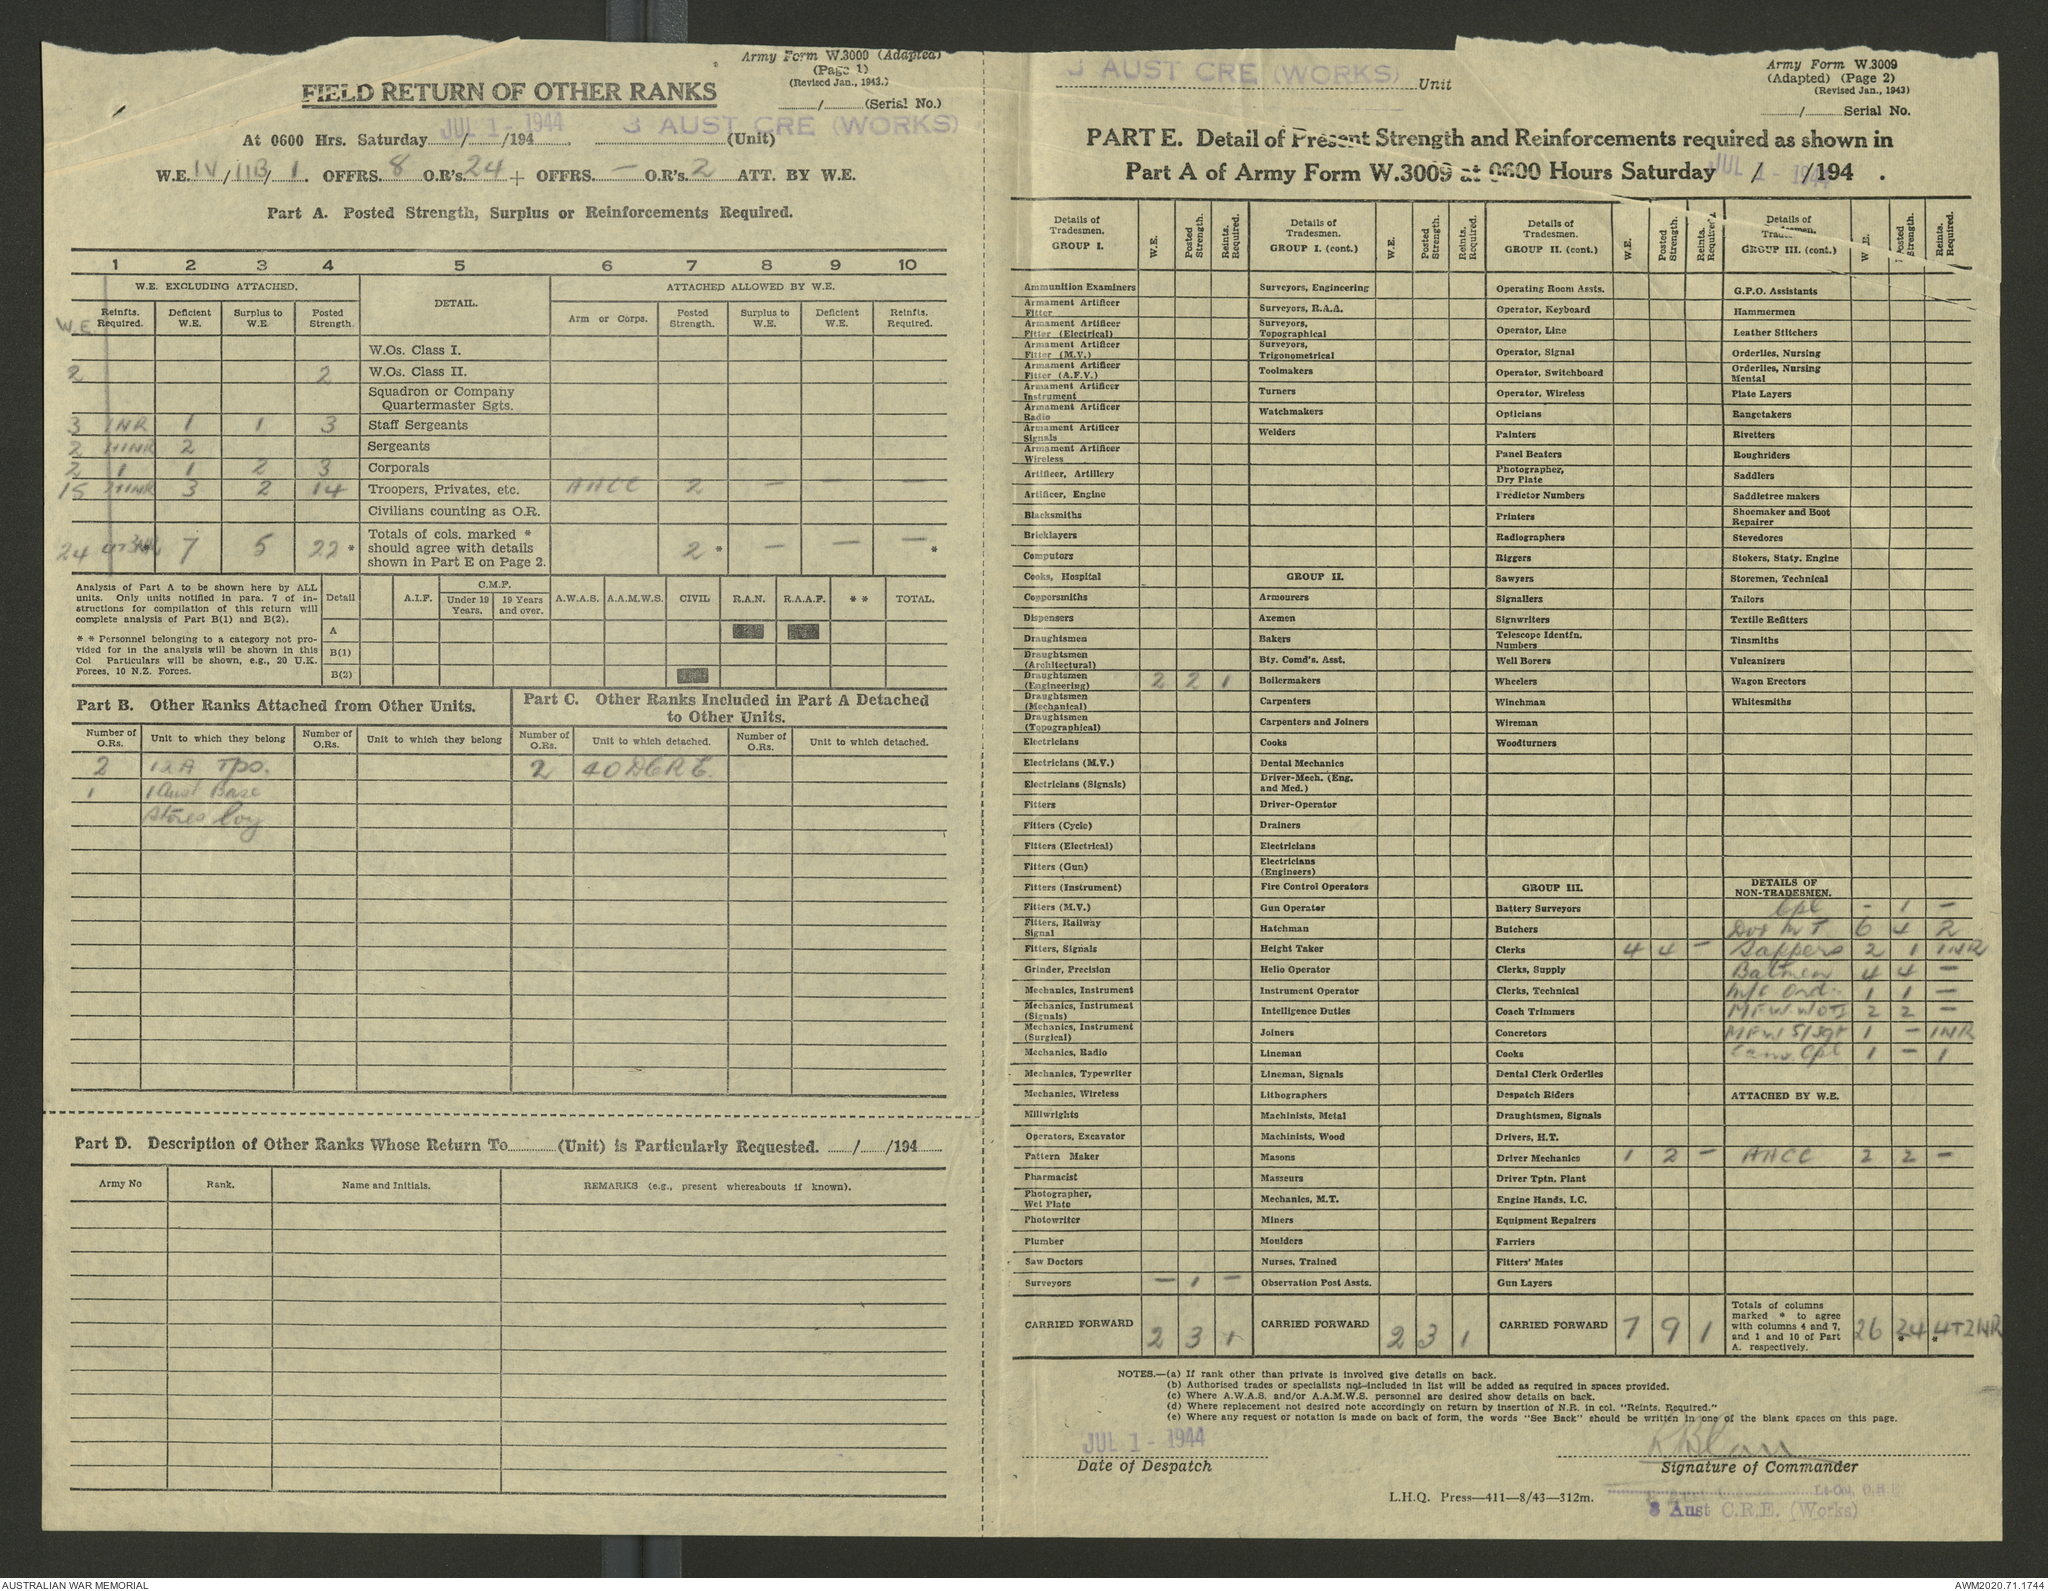 Army Form W.3009 (Adapted)
(Page 1)
(Revised Jan., 1943.)
FIELD RETURN OF OTHER RANKS
/ (Serial No.)
At 0600 Hrs. Saturday JUL 1 - 1944 / /194 . 3 AUST CRE (WORKS) (Unit)
W.E. IV / IIB / 1. OFFRS. 8 O.R's. 24 + OFFRS. — O.R's. 2 ATT. BY W.E.
Part A. Posted Strength, Surplus or Reinforcements Required.
1 2 3 4 5 6 7 8 9 10
W.E. EXCLUDING ATTACHED. DETAIL. ATTACHED ALLOWED BY W.E.
W.E. Reinfts. Required. Deficient W.E. Surplus to W.E. Posted Strength. Arm or Corps. Posted Strength. Surplus to W.E. Deficient W.E. Reinfts. Required.
W.Os. Class I.
2 2 W.Os. Class II.
Squadron or Company Quartermaster Sgts.
3 1NR 1 1 3 Staff Sergeants
2 2 Sergeants
2 1 1 2 3 Corporals
15 3 2 14 Troopers, Privates, etc. AACC 2 — — —
Civilians counting as O.R.
24 7 5 22 * Totals of cols. marked * should agree with details shown in Part E on Page 2. 2 * — — — *
Analysis of Part A to be shown here by ALL units. Only units notified in para. 7 of instructions for compilation of this return will complete analysis of Part B(1) and B(2).
* * Personnel belonging to a category not provided for in the analysis will be shown in this Col Particulars will be shown, e.g., 20 U.K. Forces, 10 N.Z. Forces.
Detail A.I.F. C.M.F. Under 19 Years. 19 Years and over. A.W.A.S. A.A.M.W.S. CIVIL R.A.N. R.A.A.F. * * TOTAL.
A
B(1)
B(2)
Part B. Other Ranks Attached from Other Units.
Part C. Other Ranks Included in Part A Detached to Other Units.
Number of O.Rs. Unit to which they belong Number of O.Rs. Unit to which they belong Number of O.Rs. Unit to which detached. Number of O.Rs. Unit to which detached.
2 Tps. 2 40 DCRE.
1 1 Aust Base
Stores Coy
Part D. Description of Other Ranks Whose Return To (Unit) is Particularly Requested. / /194
Army No Rank. Name and Initials. REMARKS (e.g., present whereabouts if known).
3 AUST CRE (WORKS) Unit
Army Form W.3009
(Adapted) (Page 2)
(Revised Jan., 1943)
/ Serial No.
PART E. Detail of Present Strength and Reinforcements required as shown in
Part A of Army Form W.3009 at 0600 Hours Saturday JUL 1 - 1944 / /194 .
Details of Tradesmen. GROUP I. W.E. Posted Strength. Reinfts. Required.
Ammunition Examiners
Armament Artificer Fitter
Armament Artificer Fitter (Electrical)
Armament Artificer Fitter (M.V.)
Armament Artificer Fitter (A.F.V.)
Armament Artificer Instrument
Armament Artificer Radio
Armament Artificer Signals
Armament Artificer Wireless
Artificer, Artillery
Artificer, Engine
Blacksmiths
Bricklayers
Computors
Cooks, Hospital
Coppersmiths
Dispensers
Draughtsmen
Draughtsmen (Architectural)
Draughtsmen (Engineering) 2 2 1
Draughtsmen (Mechanical)
Draughtsmen (Topographical)
Electricians
Electricians (M.V.)
Electricians (Signals)
Fitters
Fitters (Cycle)
Fitters (Electrical)
Fitters (Gun)
Fitters (Instrument)
Fitters (M.V.)
Fitters, Railway Signal
Fitters, Signals
Grinder, Precision
Mechanics, Instrument
Mechanics, Instrument (Signals)
Mechanics, Instrument (Surgical)
Mechanics, Radio
Mechanics, Typewriter
Mechanics, Wireless
Millwrights
Operators, Excavator
Pattern Maker
Pharmacist
Photographer, Wet Plate
Photowriter
Plumber
Saw Doctors
Surveyors — 1 —
CARRIED FORWARD 2 3 1
Details of Tradesmen. GROUP I. (cont.) W.E. Posted Strength. Reinfts. Required.
Surveyors, Engineering
Surveyors, R.A.A.
Surveyors, Topographical
Surveyors, Trigonometrical
Toolmakers
Turners
Watchmakers
Welders
GROUP II.
Armourers
Axemen
Bakers
Bty. Comd's. Asst.
Boilermakers
Carpenters
Carpenters and Joiners
Cooks
Dental Mechanics
Driver-Mech. (Eng. and Med.)
Driver-Operator
Drainers
Electricians
Electricians (Engineers)
Fire Control Operators
Gun Operator
Hatchman
Height Taker
Helio Operator
Instrument Operator
Intelligence Duties
Joiners
Lineman
Lineman, Signals
Lithographers
Machinists, Metal
Machinists, Wood
Masons
Masseurs
Mechanics, M.T.
Miners
Moulders
Nurses, Trained
Observation Post Assts.
CARRIED FORWARD 2 3 1
Details of Tradesmen. GROUP II. (cont.) W.E. Posted Strength. Reinfts. Required.
Operating Room Assts.
Operator, Keyboard
Operator, Line
Operator, Signal
Operator, Switchboard
Operator, Wireless
Opticians
Painters
Panel Beaters
Photographer, Dry Plate
Predictor Numbers
Printers
Radiographers
Riggers
Sawyers
Signallers
Signwriters
Telescope Identfn. Numbers
Well Borers
Wheelers
Winchman
Wireman
Woodturners
GROUP III.
Battery Surveyors
Butchers
Clerks 4 4 —
Clerks, Supply
Clerks, Technical
Coach Trimmers
Concretors
Cooks
Dental Clerk Orderlies
Despatch Riders
Draughtsmen, Signals
Drivers, H.T.
Driver Mechanics 1 2 —
Driver Tptn. Plant
Engine Hands, I.C.
Equipment Repairers
Farriers
Fitters' Mates
Gun Layers
CARRIED FORWARD 7 9 1
Details of Tradesmen. GROUP III. (cont.) W.E. Posted Strength. Reinfts. Required.
G.P.O. Assistants
Hammermen
Leather Stitchers
Orderlies, Nursing
Orderlies, Nursing Mental
Plate Layers
Rangetakers
Rivetters
Roughriders
Saddlers
Saddletree makers
Shoemaker and Boot Repairer
Stevedores
Stokers, Staty. Engine
Storemen, Technical
Tailors
Textile Refitters
Tinsmiths
Vulcanizers
Wagon Erectors
Whitesmiths
DETAILS OF NON-TRADESMEN.
Cpl — 1 —
Dvr MT 6 4 2
Sappers 2 1 1NR
Batmen 4 4 —
M/C Ord. 1 1 —
MFW. WO II 2 2 —
MFW. S/Sgt 1 — 1NR
Cpl 1 — 1
ATTACHED BY W.E.
AACC 2 2 —
Totals of columns marked * to agree with columns 4 and 7, and 1 and 10 of Part A. respectively. 26 24 * 4+2NR *
NOTES.—(a) If rank other than private is involved give details on back.
(b) Authorised trades or specialists not included in list will be added as required in spaces provided.
(c) Where A.W.A.S. and/or A.A.M.W.S. personnel are desired show details on back.
(d) Where replacement not desired note accordingly on return by insertion of N.R. in col. "Reints. Required."
(e) Where any request or notation is made on back of form, the words "See Back" should be written in one of the blank spaces on this page.
JUL 1 - 1944
Date of Despatch
Signature of Commander
L.H.Q. Press—411—8/43—312m.
Lt-Col, C.R.E.
3 Aust C.R.E. (Works)
AUSTRALIAN WAR MEMORIAL
AWM2020.71.1744